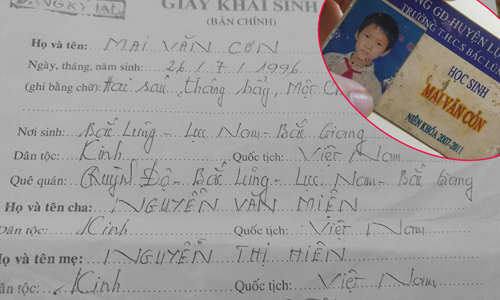 ĐĂNG KÝ LẠI
GIẤY KHAI SINH
(BẢN CHÍNH)
Họ và tên: MAI VĂN CƠN
Ngày, tháng, năm sinh: 26 / 7 / 1996
(ghi bằng chữ): Hai sáu, tháng bảy, Một
Nơi sinh: Bắc Lũng - Lục Nam - Bắc Giang
Dân tộc: Kinh Quốc tịch: Việt Nam
Quê quán: Quỳnh Độ - Bắc Lũng - Lục Nam - Bắc Giang
Họ và tên cha: NGUYỄN VĂN MIÊN
Dân tộc: Kinh Quốc tịch: Việt Nam
Họ và tên mẹ: NGUYỄN THỊ HIỀN
Dân tộc: Kinh Quốc tịch: Việt Nam
GD HUYỆN
TRƯỜNG T.H.C.S BẮC LŨNG
HỌC SINH
MAI VĂN CÓN
NIÊN KHÓA 2007-2011